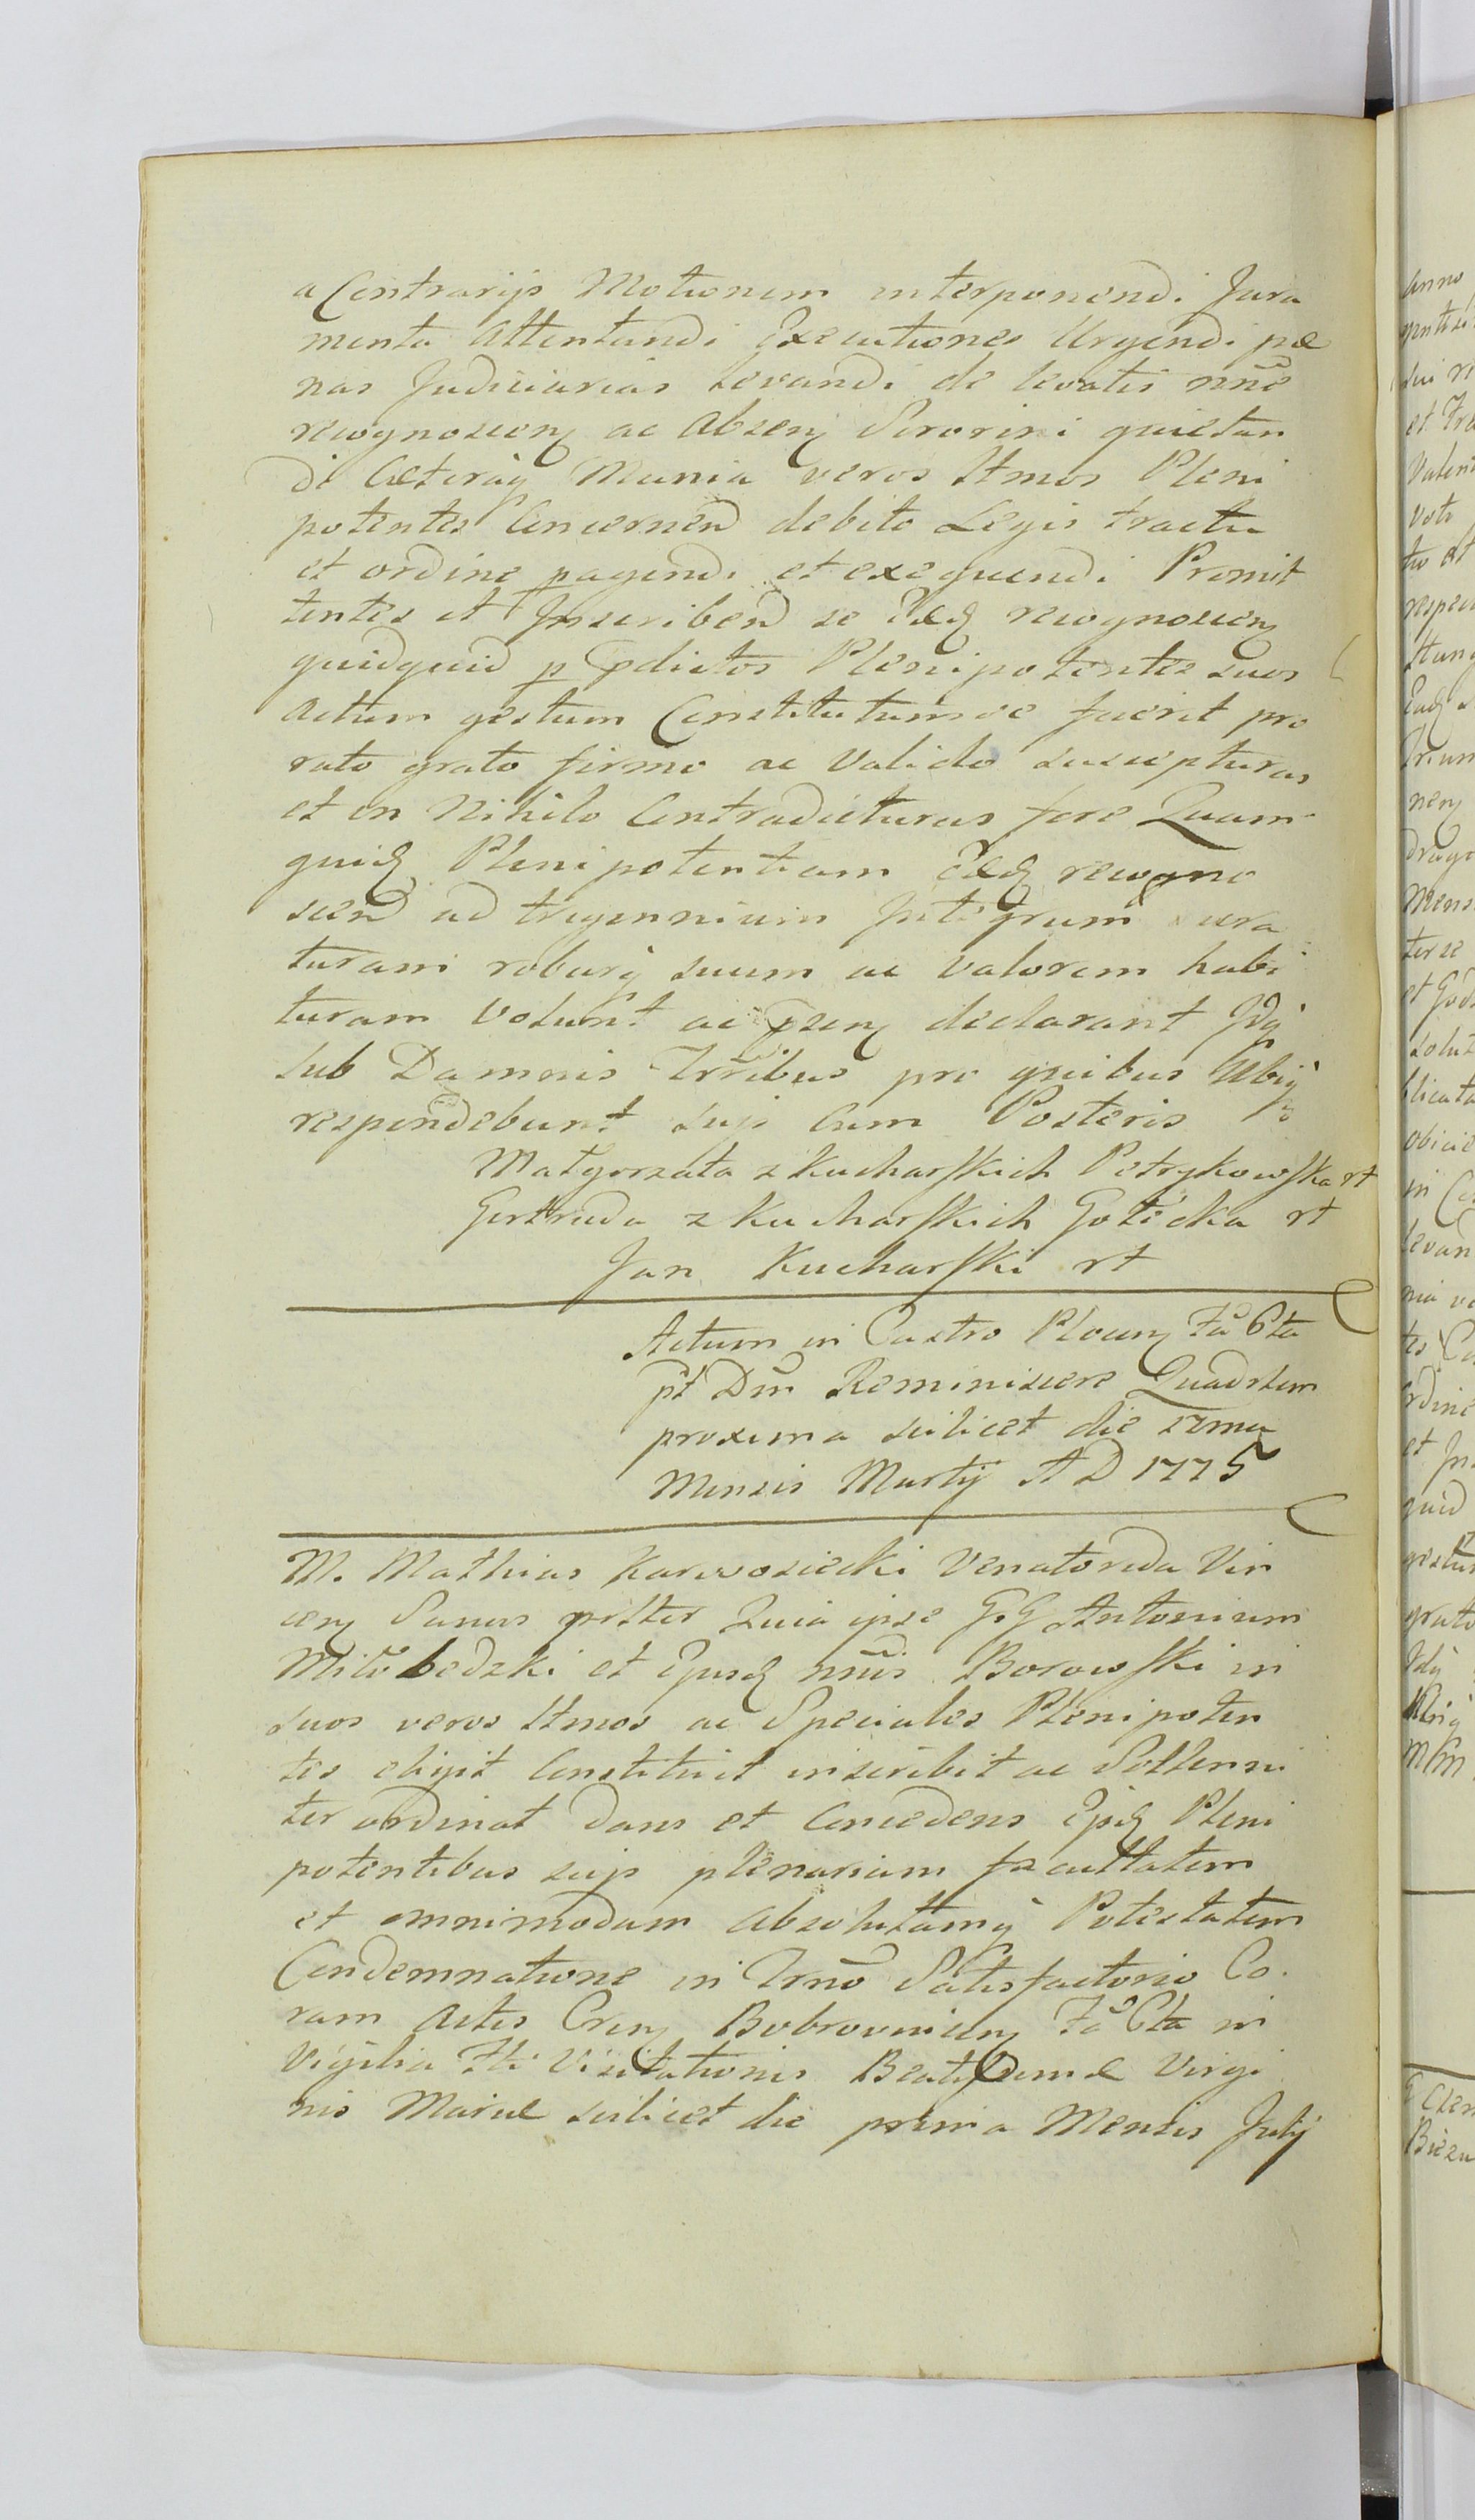 a Contrarijs Motionem interponendi Jura
menta Attentandi Executiones Urgendi pæ
nas Judiciarias Levandi de levatis nñe
recognoscenꝫ ac Absenꝫ Sororini quietan
di Cæteraqꝫ Munia veros Ltmos Pleni
potentes Concernenᵭ debito Legis tractu
et ordine pagendi et exequendi Promit
tentes et Inscribenᵭ se recognoscenꝫ
quidquid p pdictos Plenipotentes suos
Actum gestum Constitutumve fuerit pro
rato grato firmo ac Valido suscepturas
et in Nihilo Contradicturas fore Quam
quiꝫ Plenipotentiam recogno
scenᵭ ad tryennium Integrum dura
turam roburqꝫ suum ac Valorem habi
turam Volunt ac pzenꝫ declarant Idqꝫ
sub Damnis Trribus pro quibus Ubiqꝫ
respondebunt sujs Cum Posteris
Małgorzata z Kucharſkich Petrykowſka rt
Gertruda z Kucharſkich Gołęcka rt
Jan Kucharſki rt
Actum in Castro Plocenꝫ Fã 6ta
pt Dñi Reminiscere Quadrlem
proxima scilicet die 17ma
Mensis Martij A D 1775
M. Mathias Karwosiecki Venatorida Vis
cenꝫ Sanus prltter Quia ipse G.G Antonium
Miłobedzki et Ejusꝫ nñis Borowſki in
suos veros Ltmos ac Speciales Plenipoten
tes eligit Constituit inscribit ac Sollenni
ter ordinat Dans et Concedens Ejsꝫ Pleni
potentibus sujs plenariam facultatem
et omnimodam Absolutamqꝫ Potestatem
Condemnatione in Trño Satisfactorio Co.
ram Actis Crenꝫ Bobrovnicenꝫ Fã 6ta in
Vigilia Fti Visitationis Beatissimæ Virgi
nis Mariæ scilicet die prima Mensis Julij